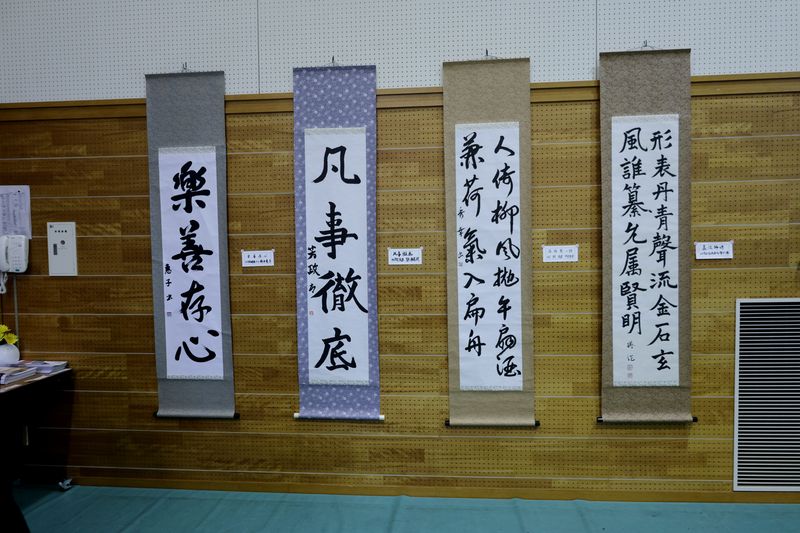 樂善存心
惠子
凡事徹底
人倚柳風抛午扇酒
兼荷氣入扁舟
形表丹青聲流金石玄
風誰纂允属賢明